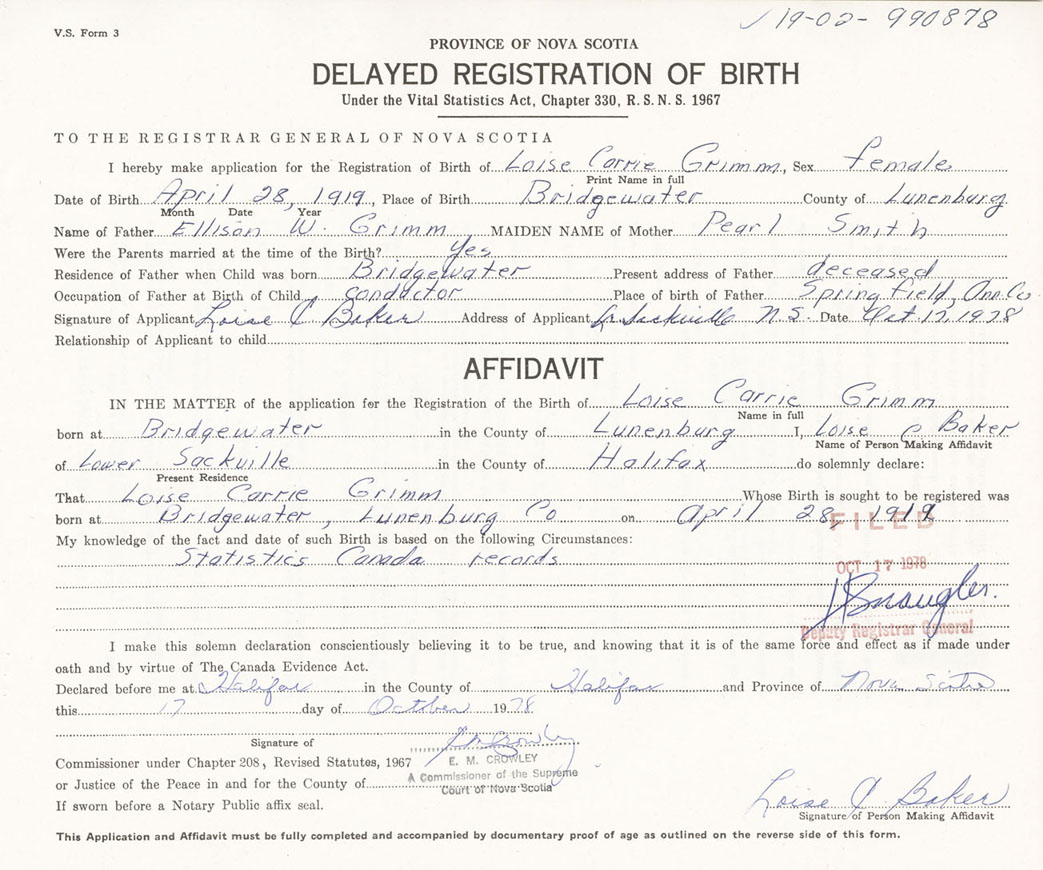 V.S. Form 3
✓ 19-02-990878
PROVINCE OF NOVA SCOTIA
DELAYED REGISTRATION OF BIRTH
Under the Vital Statistics Act, Chapter 330, R.S.N.S. 1967
TO THE REGISTRAR GENERAL OF NOVA SCOTIA
I hereby make application for the Registration of Birth of Loise Carrie Grimm, Sex female
Print Name in full
Date of Birth April 28, 1919, Place of Birth Bridgewater County of Lunenburg
Month Date Year
Name of Father Ellison W. Grimm MAIDEN NAME of Mother Pearl Smith
Were the Parents married at the time of the Birth? Yes
Residence of Father when Child was born Bridgewater Present address of Father deceased
Occupation of Father at Birth of Child conductor Place of birth of Father Springfield, Ann. Co
Signature of Applicant Loise C Baker Address of Applicant Sackville N.S. Date Oct 17, 1978
Relationship of Applicant to child
AFFIDAVIT
IN THE MATTER of the application for the Registration of the Birth of Loise Carrie Grimm
Name in full
born at Bridgewater in the County of Lunenburg I, Loise C Baker
Name of Person Making Affidavit
of Lower Sackville in the County of Halifax do solemnly declare:
Present Residence
That Loise Carrie Grimm Whose Birth is sought to be registered was
born at Bridgewater, Lunenburg Co on April 28, 1919
FILED
My knowledge of the fact and date of such Birth is based on the following Circumstances:
Statistics Canada records
OCT 17 1978
Deputy Registrar General
I make this solemn declaration conscientiously believing it to be true, and knowing that it is of the same force and effect as if made under
oath and by virtue of The Canada Evidence Act.
Declared before me at Halifax in the County of Halifax and Province of Nova Scotia
this 17 day of October 1978
Signature of
Commissioner under Chapter 208, Revised Statutes, 1967
E. M. CROWLEY
A Commissioner of the Supreme
Court of Nova Scotia
or Justice of the Peace in and for the County of
If sworn before a Notary Public affix seal.
Loise C Baker
Signature of Person Making Affidavit
This Application and Affidavit must be fully completed and accompanied by documentary proof of age as outlined on the reverse side of this form.